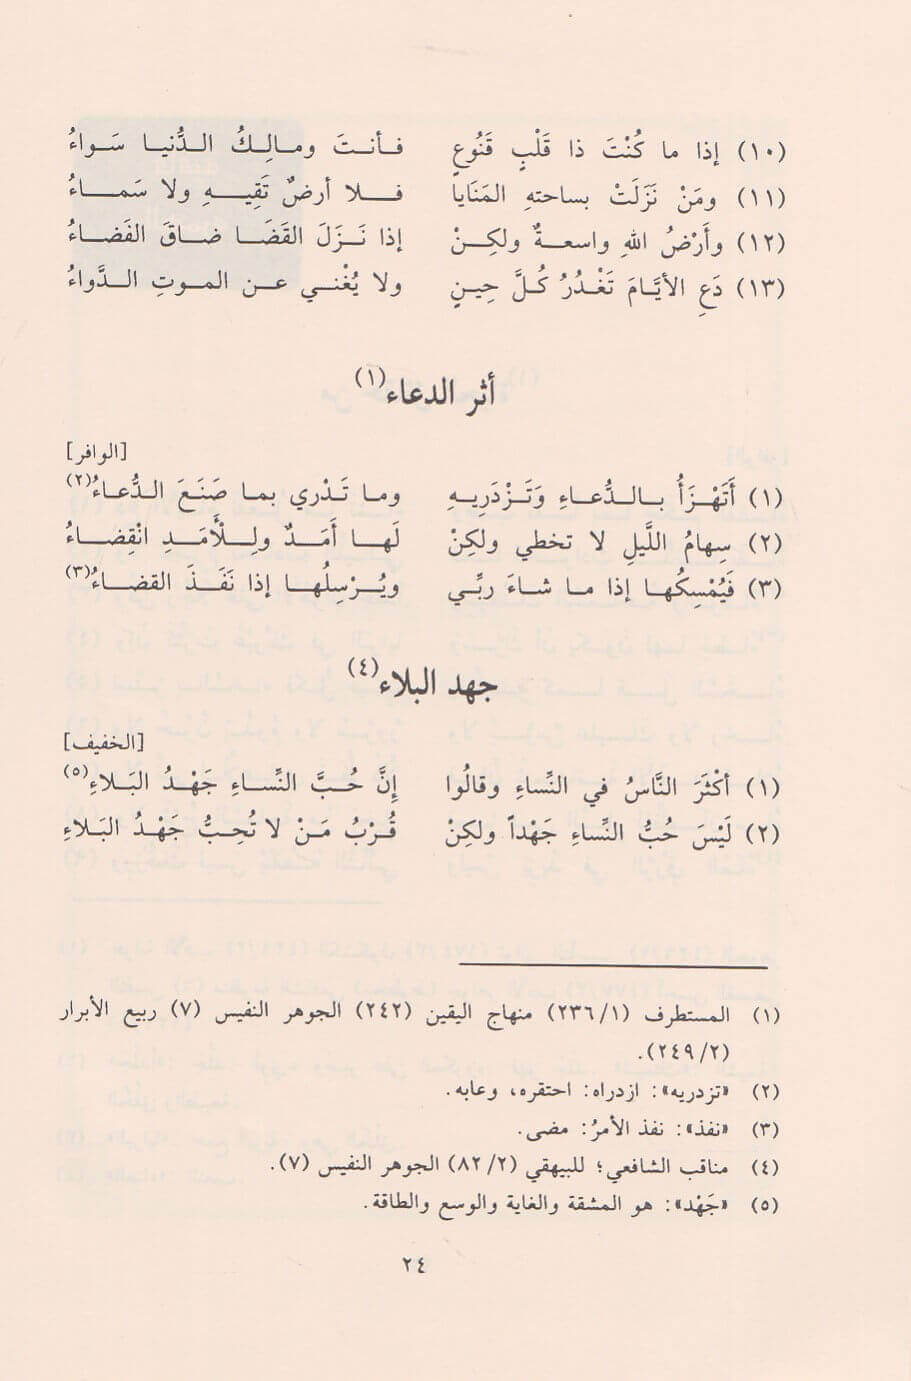 (١٠) إذا ما كُنْتَ ذا قَلْبٍ قَنُوعٍ فـأنـتَ ومـالِـكُ الـدُّنيـا سَـواءُ
(١١) ومَنْ نَزَلَتْ بساحتهِ المَنَايا فـلا أرضٌ تَقِيـهِ ولا سَمـاءُ
(١٢) وأَرْضُ اللهِ واسعـةٌ ولكِـنْ إذا نَـزَلَ القَضَـا ضـاقَ الفَضـاءُ
(١٣) دَعِ الأيَّـامَ تَغْـدُرُ كُـلَّ حِيـنٍ ولا يُغْنـي عـن المـوتِ الـدَّواءُ
أثر الدعاء(١)
[الوافر]
(١) أَتَهْزَأُ بـالـدُّعـاءِ وَتَـزْدَرِيـهِ ومـا تَـدْري بمـا صَنَـعَ الـدُّعاءُ(٢)
(٢) سِهامُ اللَّيلِ لا تخطي ولكِنْ لَهـا أَمَـدٌ ولِـلْأَمَـدِ انْقِضـاءُ
(٣) فَيُمْسِكُهـا إذا مـا شـاءَ ربِّـي ويُـرْسِلُهـا إذا نَفَـذَ القضـاءُ(٣)
جهد البلاء(٤)
[الخفيف]
(١) أكْثَرَ النَّاسُ في النِّساءِ وقالُوا إنَّ حُـبَّ النِّسـاءِ جَهْـدُ البَـلاءِ(٥)
(٢) لَيْسَ حُبُّ النِّساءِ جَهْداً ولكِنْ قُـرْبُ مَـنْ لا تُحِـبُّ جَهْـدُ البَـلاءِ
(١) المستطرف (١/٢٣٦) منهاج اليقين (٢٤٢) الجوهر النفيس (٧) ربيع الأبرار
(٢/٢٤٩).
(٢) «تزدريه»: ازدراه: احتقره، وعابه.
(٣) «نفذ»: نفذ الأمرُ: مضى.
(٤) مناقب الشافعي؛ للبيهقي (٢/٨٢) الجوهر النفيس (٧).
(٥) «جَهْد»: هو المشقة والغاية والوسع والطاقة.
٢٤